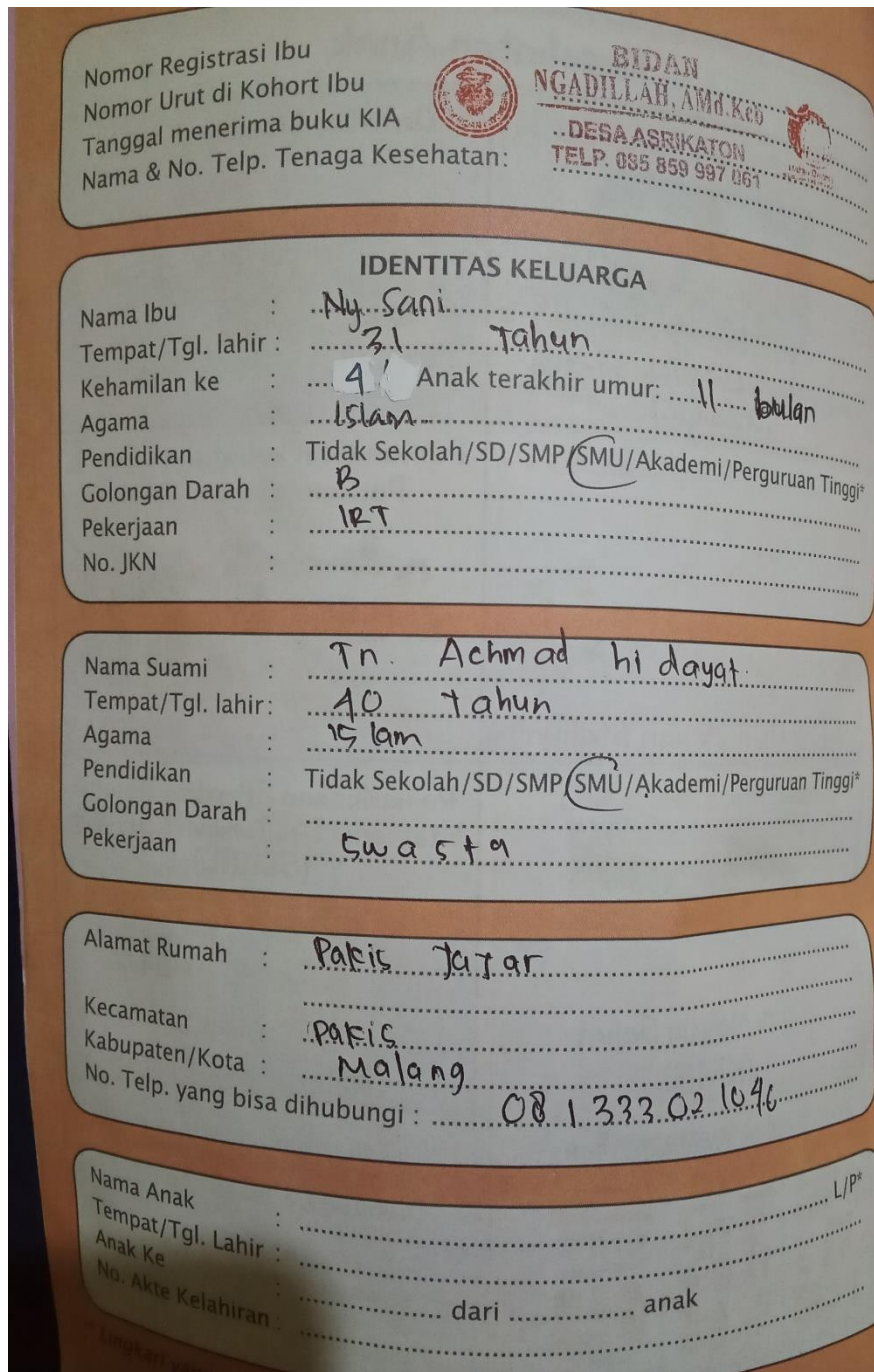 Nomor Registrasi Ibu :
Nomor Urut di Kohort Ibu
Tanggal menerima buku KIA
Nama & No. Telp. Tenaga Kesehatan:
BIDAN
NGADILLAH, AMd.Keb
DESA ASRIKATON
TELP. 085 859 997 061
IDENTITAS KELUARGA
Nama Ibu : Ny. Sani
Tempat/Tgl. lahir : 31 Tahun
Kehamilan ke : 4 Anak terakhir umur: 11 bulan
Agama : Islam
Pendidikan : Tidak Sekolah/SD/SMP/SMU/Akademi/Perguruan Tinggi*
Golongan Darah : B
Pekerjaan : IRT
No. JKN :
Nama Suami : Tn. Achmad hidayat
Tempat/Tgl. lahir: 40 tahun
Agama : islam
Pendidikan : Tidak Sekolah/SD/SMP/SMU/Akademi/Perguruan Tinggi*
Golongan Darah :
Pekerjaan : swasta
Alamat Rumah : Pakis Jajar
Kecamatan : Pakis
Kabupaten/Kota : Malang
No. Telp. yang bisa dihubungi : 081 333 02 1046
Nama Anak : L/P*
Tempat/Tgl. Lahir :
Anak Ke : dari anak
No. Akte Kelahiran :
* Lingkari